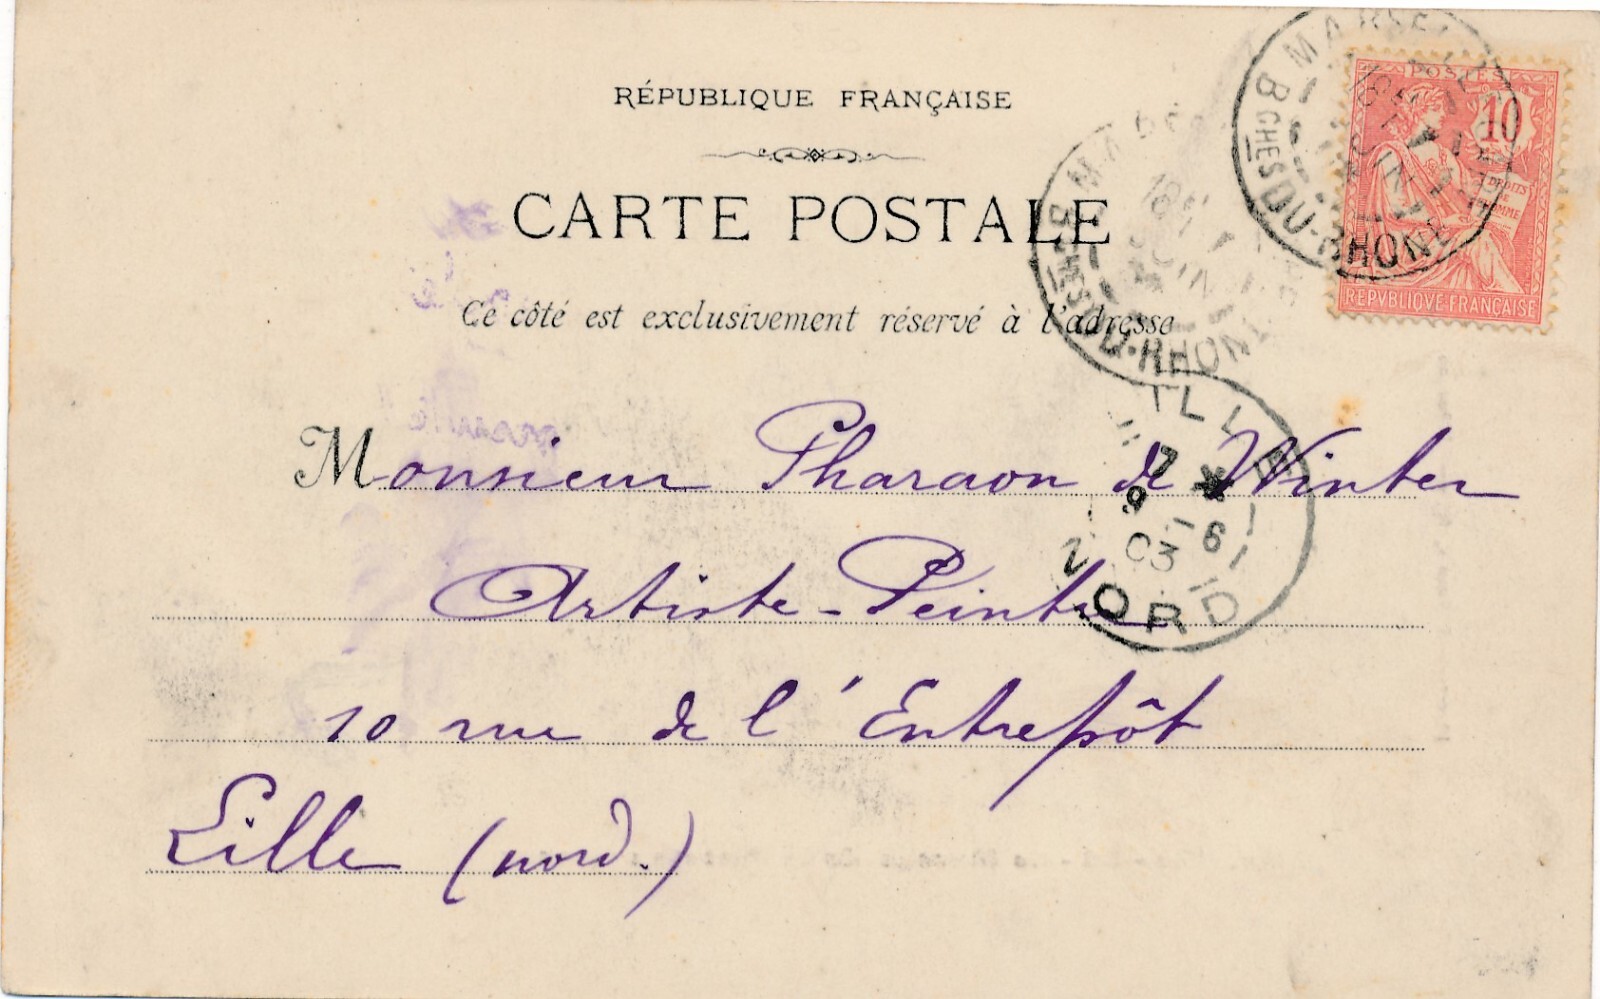 RÉPUBLIQUE FRANÇAISE
CARTE POSTALE
Ce côté est exclusivement réservé à l'adresse
Monsieur Pharaon de Winter
Artiste-Peintre
10 rue de l'Entrepôt
Lille (nord.)
POSTES
10
DROITS DE HOMME
REPVBLIQVE·FRANÇAISE
MARSEILLE
BCHES DU-RHONE
JUIN
MARSEILLE
BCHES DU-RHONE
JUIN
LILLE
7
9 - 6
03
NORD